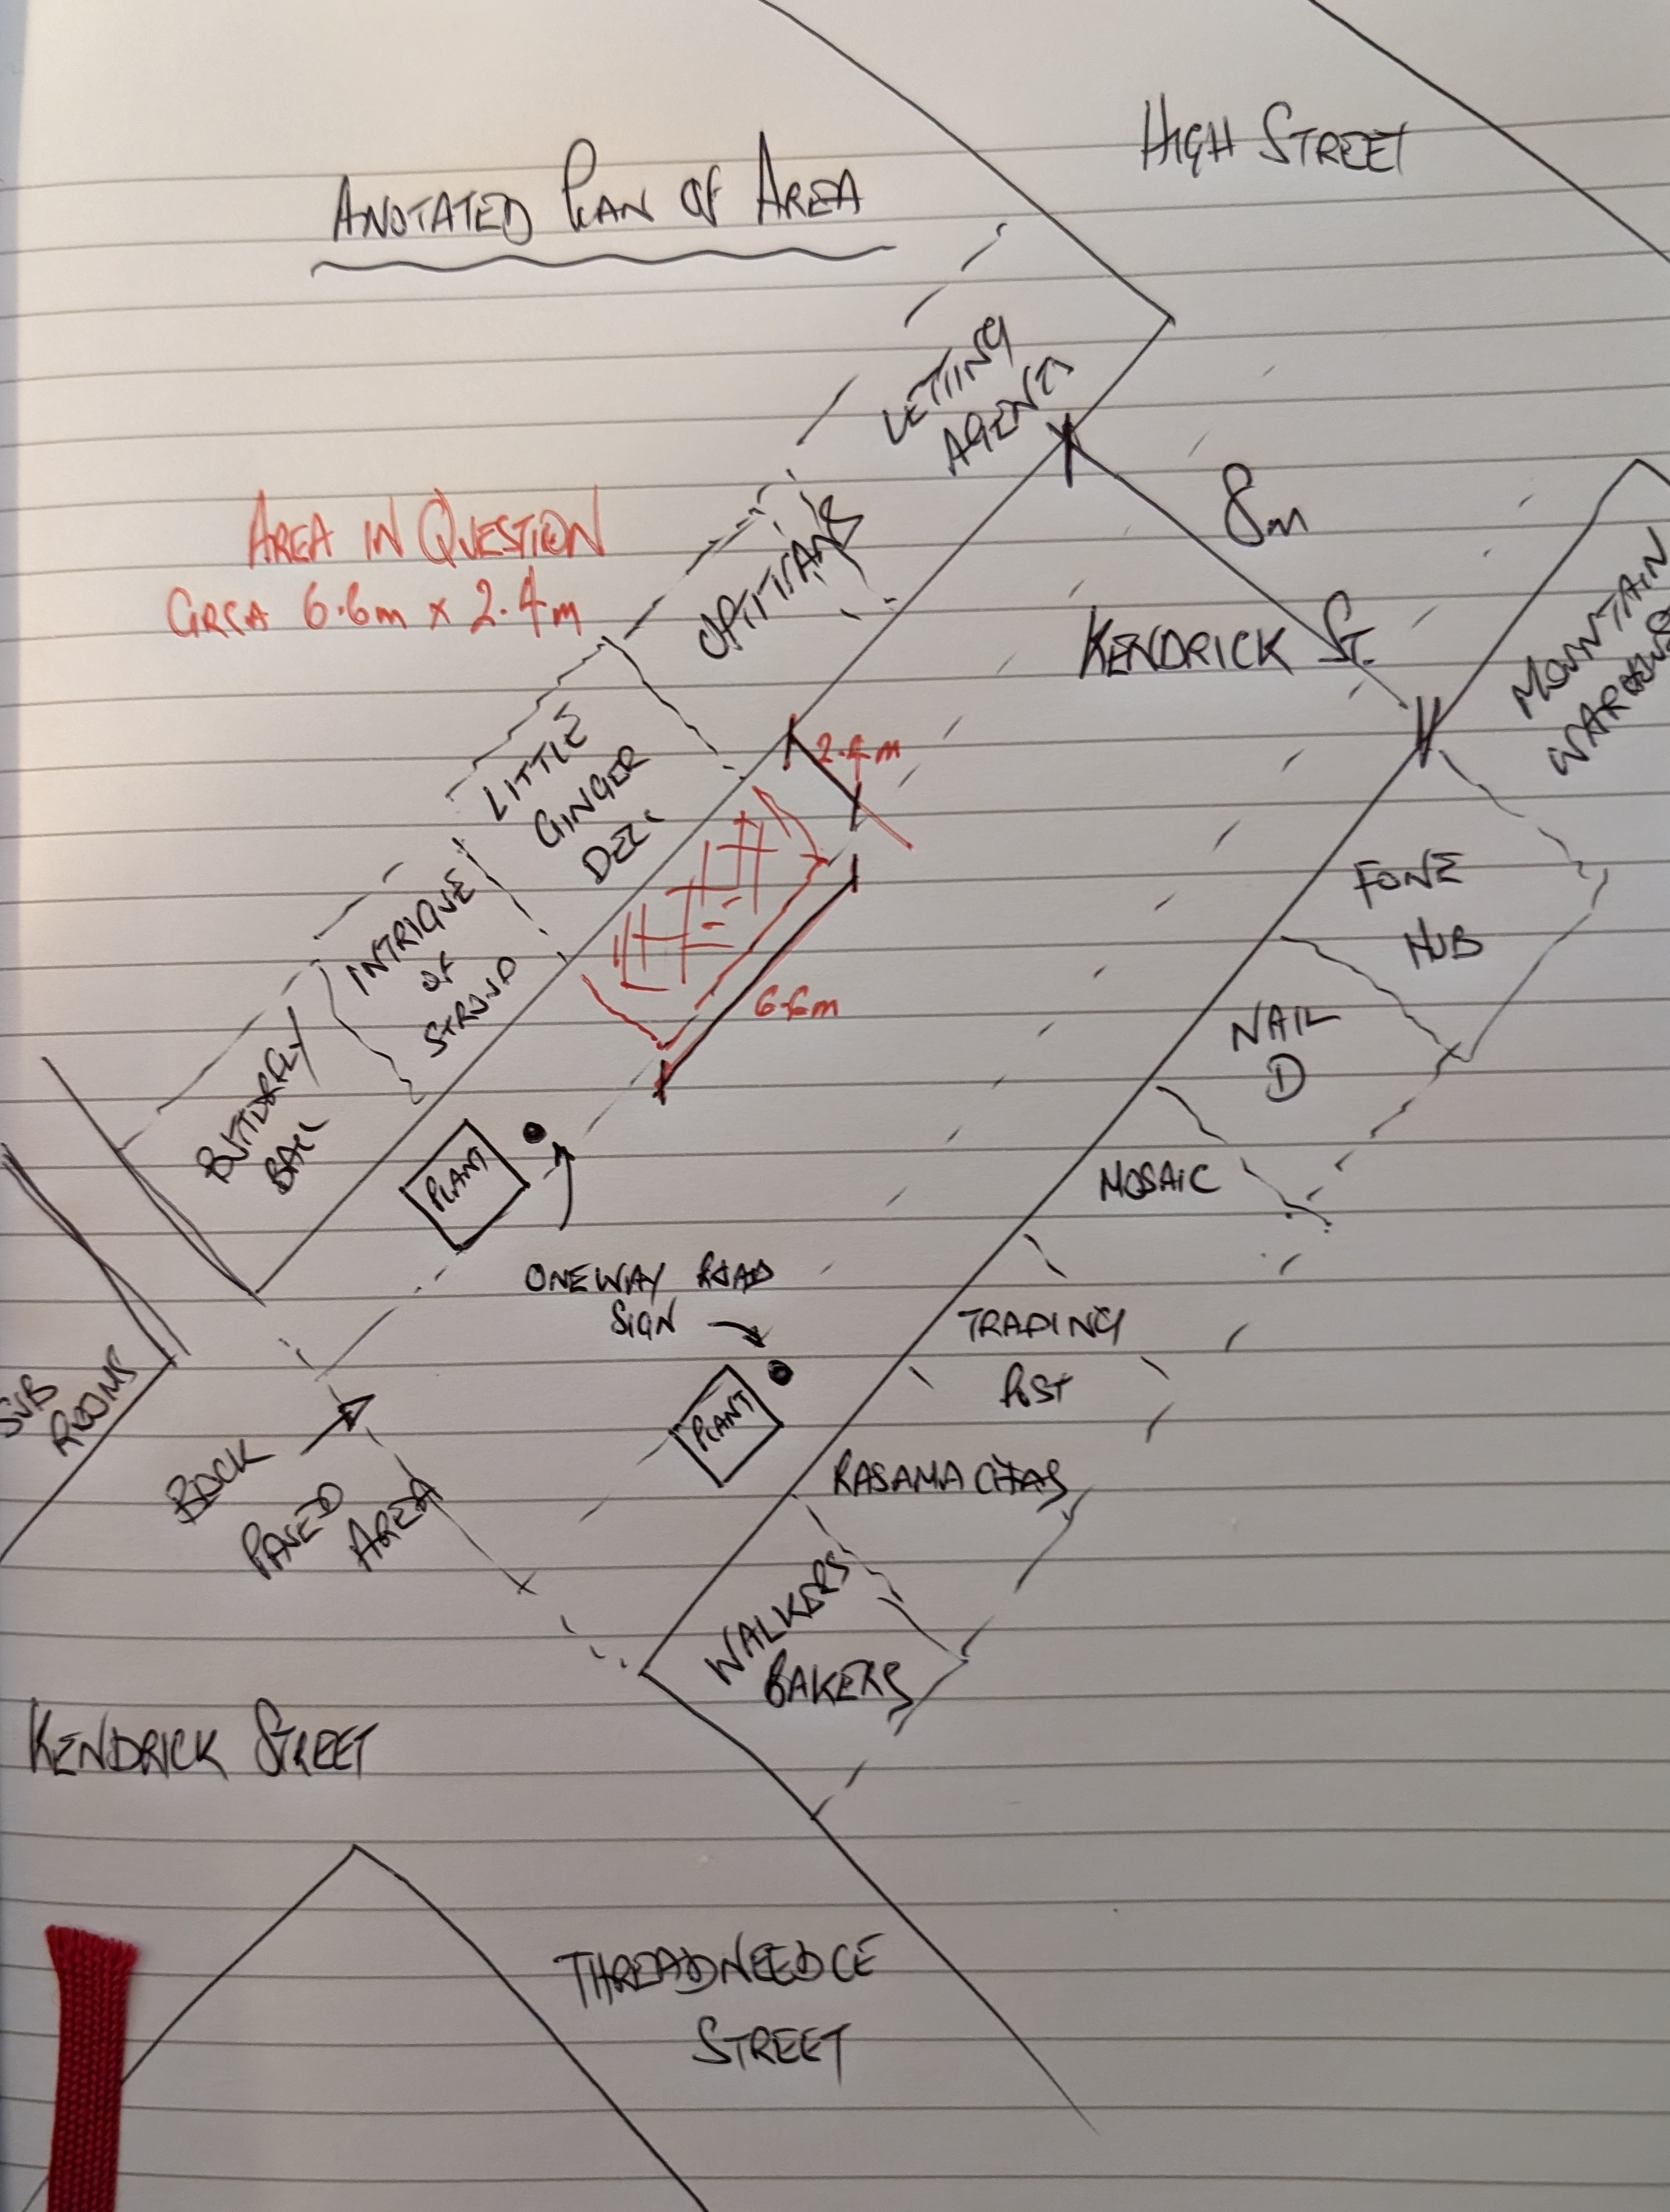 HIGH STREET
ANOTATED PLAN OF AREA
LETTING
AGENT
8m
AREA IN QUESTION
CIRCA 6.6m x 2.4m
OPTITIANS
KENDRICK ST.
MOUNTAIN
2.4m
LITTLE
GINGER
DELI
FONE
HUB
INTRIQUE
OF
STROUD
6.6m
NAIL
D
BUTTERFLY
BALL
PLANT
MOSAIC
ONEWAY ROAD
SIGN
TRADING
POST
PLANT
SUB
ROOMS
RASAMA CHAS
PAVED
AREA
WALKERS
BAKERS
KENDRICK STREET
THREADNEEDLE
STREET